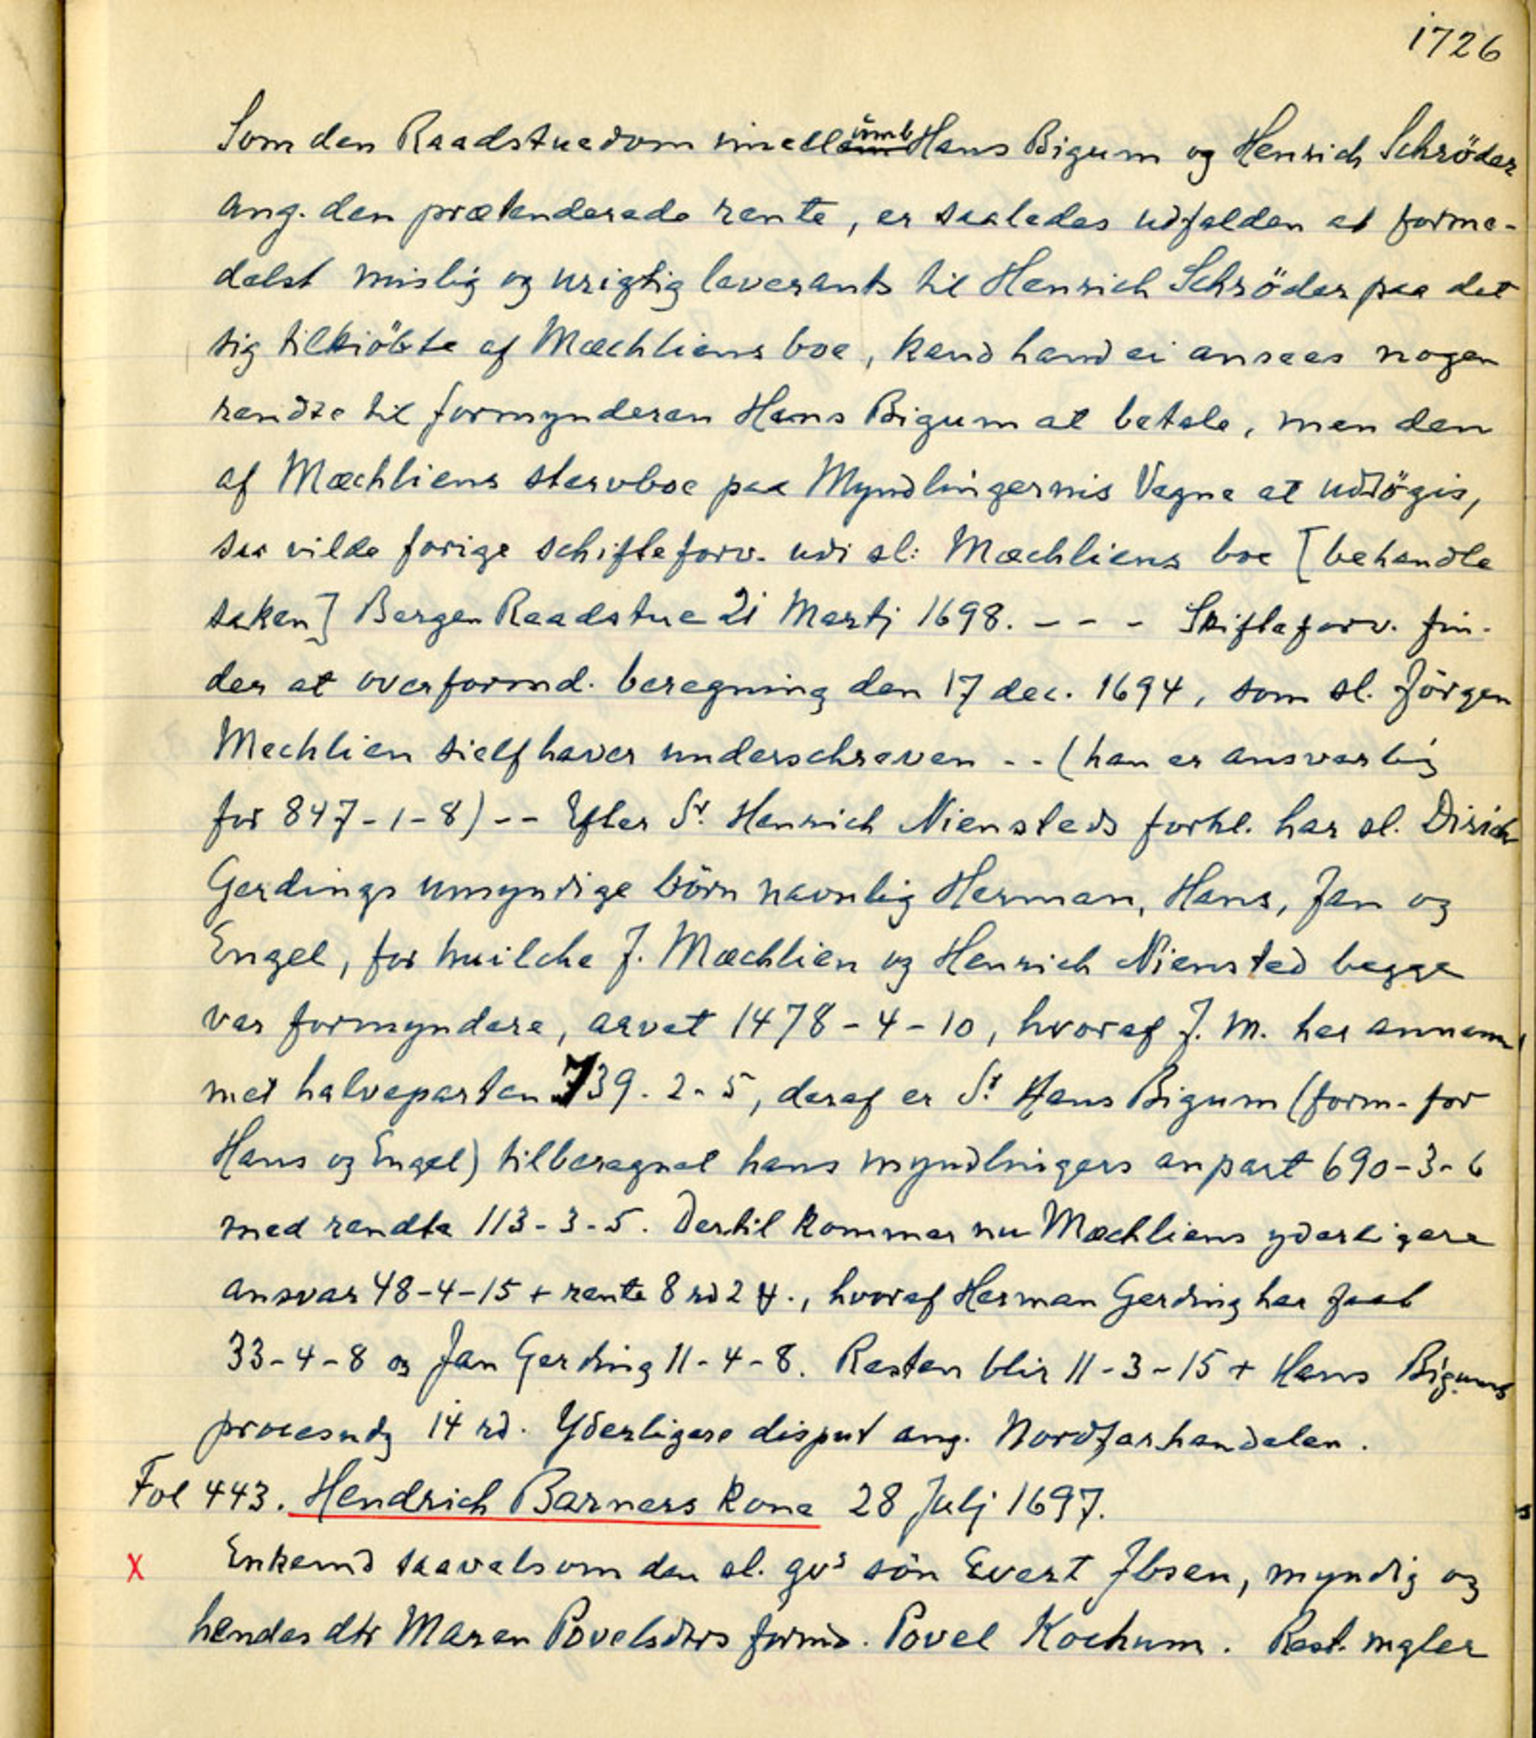 1726
Som den Raadstuedom imellumb Hans Bigum og Henrich Schröder
ang. den prætenderede rente, er saaledes udfalden at forme-
delst mislig og urigtig leverants til Henrich Schröder paa det
sig tilkiöbte af Mæchliens boe, kand hand ei ansees nogen
rendte til formynderen Hans Bigum at betale, men den
af Mæchliens stervboe paa Myndlingernis Vegne at udsögis,
saa vilde forige schifteforv. udi sl: Mæchliens boe [behandle
saken] Bergen Raadstue 21 Martj 1698. - - - Skifteforv. fin-
der at overformd. beregning den 17 dec. 1694, som sl. Jörgen
Mechlien sielf haver underschreven - - (han er ansvarlig
for 847-1-8) -- Efter Sr. Henrich Niensteds forkl. har sl. Dirich
Gerdings umyndige börn navnlig Herman, Hans, Jan og
Engel, for huilche J. Mæchlien og Henrich Niensted begge
var formyndere, arvet 1478-4-10, hvoraf J. M. har annam
met halveparten 739-2-5, deraf er Sr. Hans Bigum (form. for
Hans og Engel) tilberegnet hans myndlingers anpart 690-3-6
med rendte 113-3-5. Dertil kommer nu Mæchliens yderligere
ansvar 48-4-15 + rente 8 rd 2 ℔., hvoraf Herman Gerding har faat
33-4-8 og Jan Gerding 11-4-8. Resten blir 11-3-15 + Hans Bigums
procesudg 14 rd. Yderligere disput ang. Nordfarhandelen.
Fol 443. Hendrich Barners kone 28 Julj 1697.
X Enkemd saavelsom den sl. qvs sön Evert Ibsen, myndig og
hendes dtr Maren Povelsdtrs formd. Povel Kochum. Rest. mgler